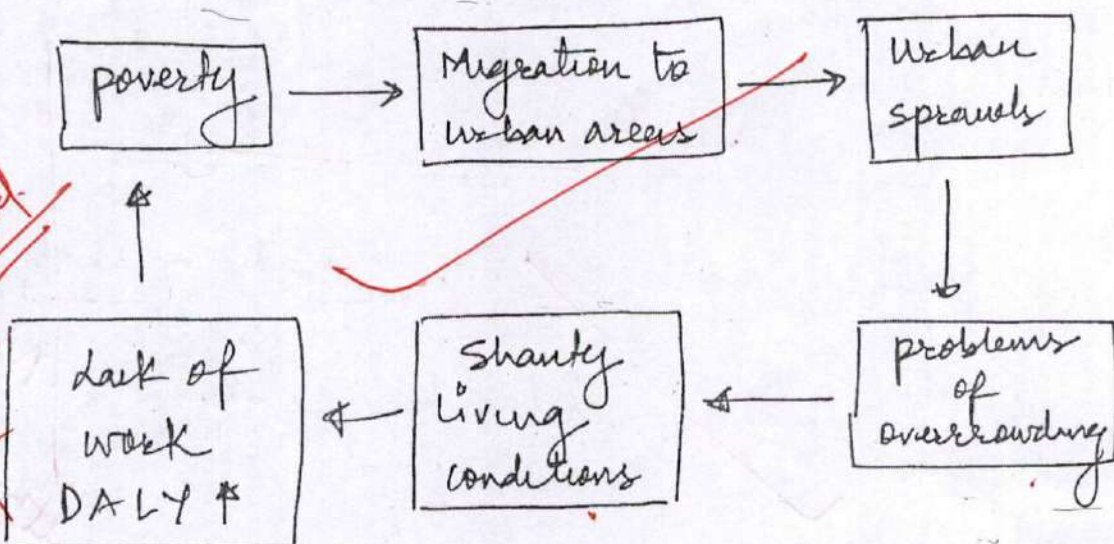 poverty
Migration to
urban areas
Urban
sprawls
problems
of
overrowding
Shanty
living
conditions
Lack of
work
DALY ↑